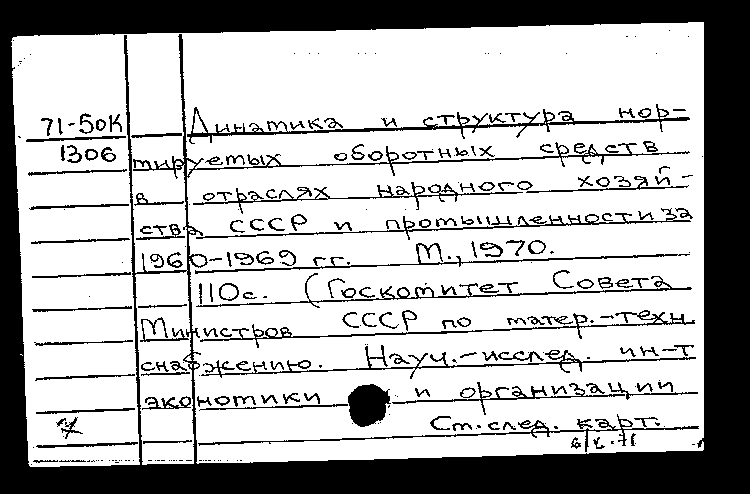 71-50К Динамика и структура нор-
1306 мируемых оборотных средств
в отраслях народного хозяй-
ства СССР и промышленности за
1960-1969 гг. М., 1970.
110с. (Госкомитет Совета
Министров СССР по матер.-техн.
снабжению. Науч.-исслед. ин-т
экономики и организации
Ст. след. карт.